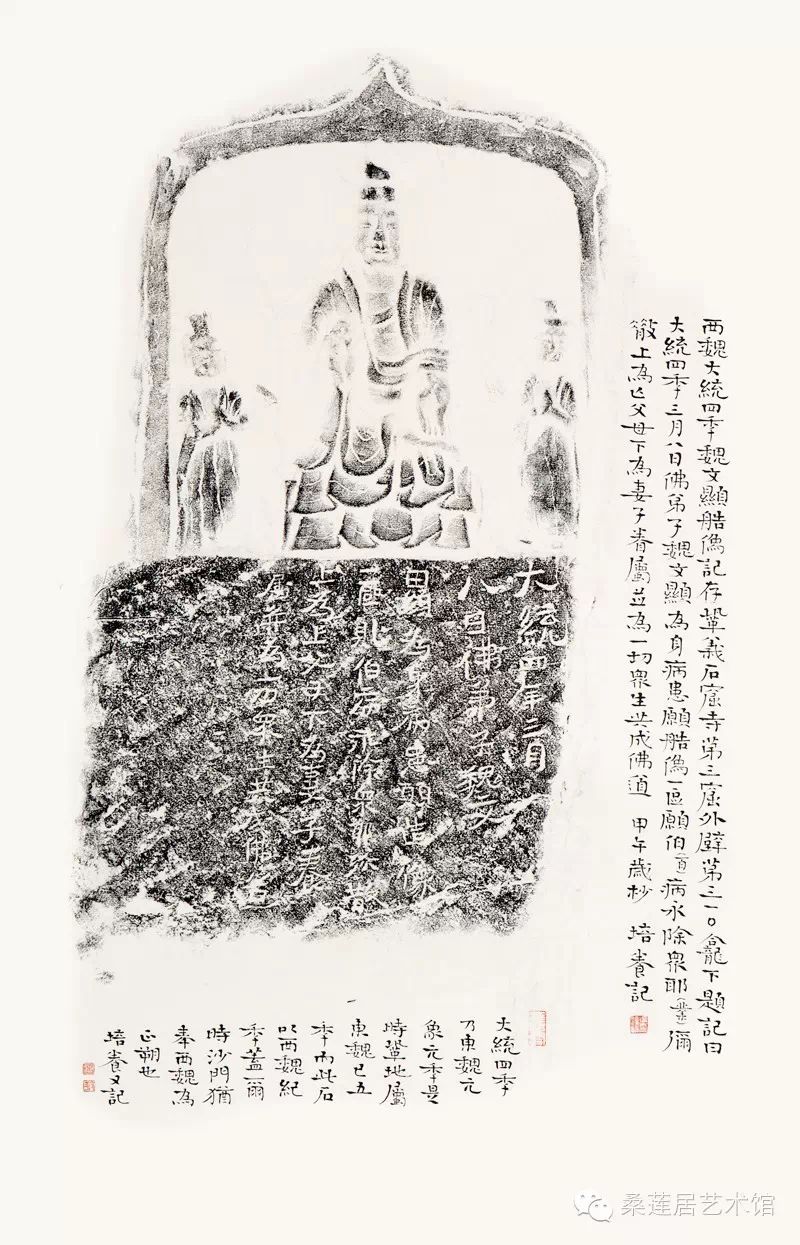 西魏大統四季魏文顯艁像記存鞏義石窟寺第三窟外壁第三一〇龕下題記曰
大統四季三月八日佛弟子魏文顯為身病患願艁像一區願伯(百)病永除眾耶彌
散上為亡父母下為妻子眷屬並為一切眾生共成佛道 甲午歲杪 培養記
大統四年三月
八日佛弟子魏文
顯為身病患願造像
一區願伯病永除眾耶弥散
上為亡父母下為妻子眷
屬並為一切眾生共成佛道
大統四季
乃東魏元
象元季是
時鞏地屬
東魏已五
季而此石
以西魏紀
季蓋爾
時沙門猶
奉西魏為
正朔也
培養又記
桑莲居艺术馆